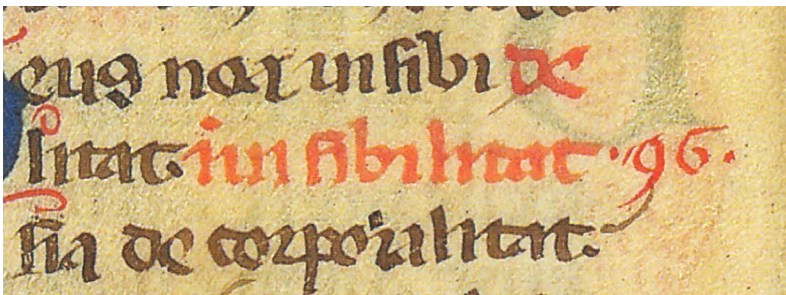 eus nai inſibi de
litat. inuiſibilitat · 96 .
ſia de corporalitat.